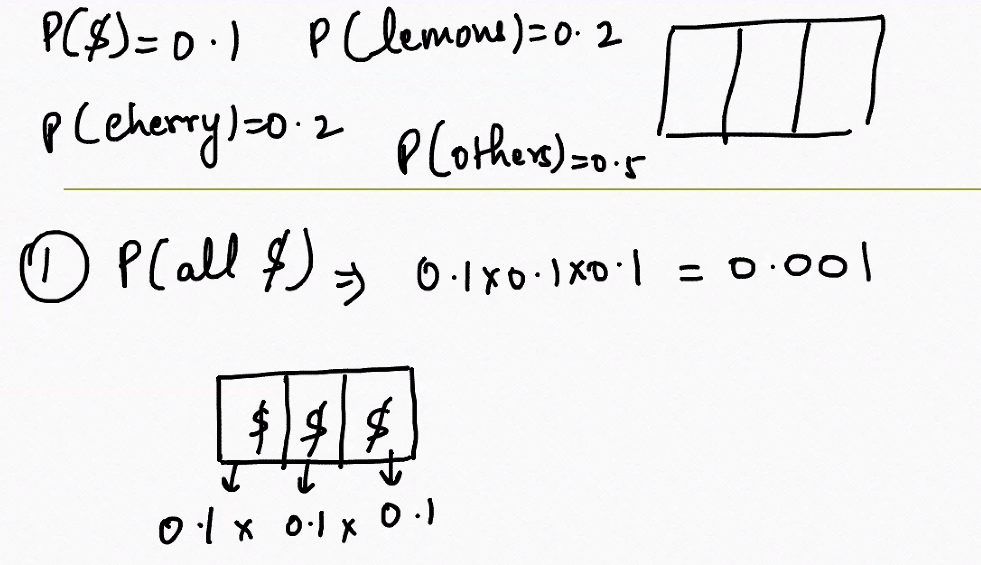 P($)=0.1 P(lemons)=0.2
P(cherry)=0.2 P(others)=0.5
① P(all $) ⇒ 0.1x0.1x0.1 = 0.001
$ $ $
0.1 x 0.1 x 0.1